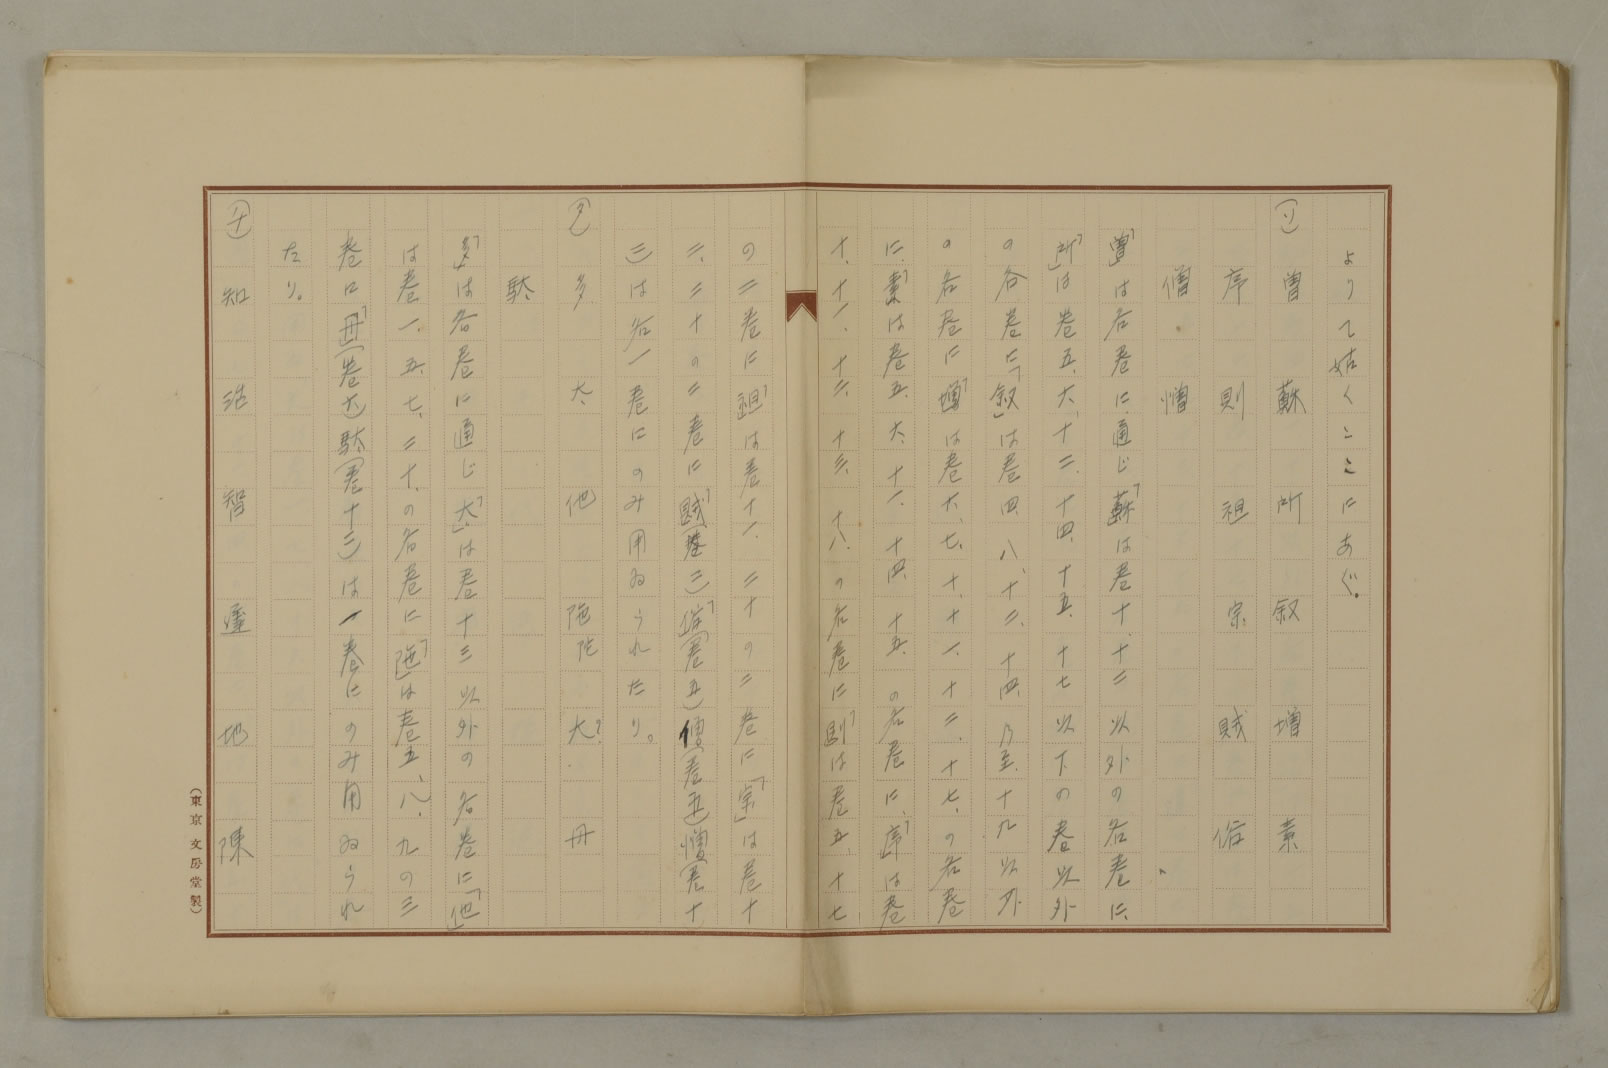 よりて姑くここにあぐ。
(ソ) 曽 蘇 所 叙 増 素
序 則 祖 宗 賊 俗
僧 憎
「曽」は各巻に通じ「蘇」は巻十、十二以外の各巻に、
「所」は巻五、六、十二、十四、十五、十七以下の巻以外
の各巻に「叙」は巻四、八、十二、十四、乃至十九以外
の各巻に「増」は巻六、七、十、十一、十二、十七、の各巻
に、「素」は巻五、六、十一、十四、十五、の各巻に、「序」は巻
十、十一、十二、十三、十八、の各巻に「則」は巻五、十七
の二巻に「祖」は巻十一、二十の二巻に「宗」は巻十
二、二十の二巻に「賊」(巻三)「俗」(巻五)僧(巻五)憎(巻十
三)は各一巻にのみ用ゐられたり。
(タ) 多 太 他 陁陀 大? 丹
駄
「多」は各巻に通じ「太」は巻十三以外の各巻に「他」
は巻一、五、七、二十、の各巻に「陁」は巻五、八、九の三
巻に「丹」(巻六)駄(巻十三)は一巻にのみ用ゐられ
たり。
(チ) 知 智 地 陳
(東京 文房堂製)